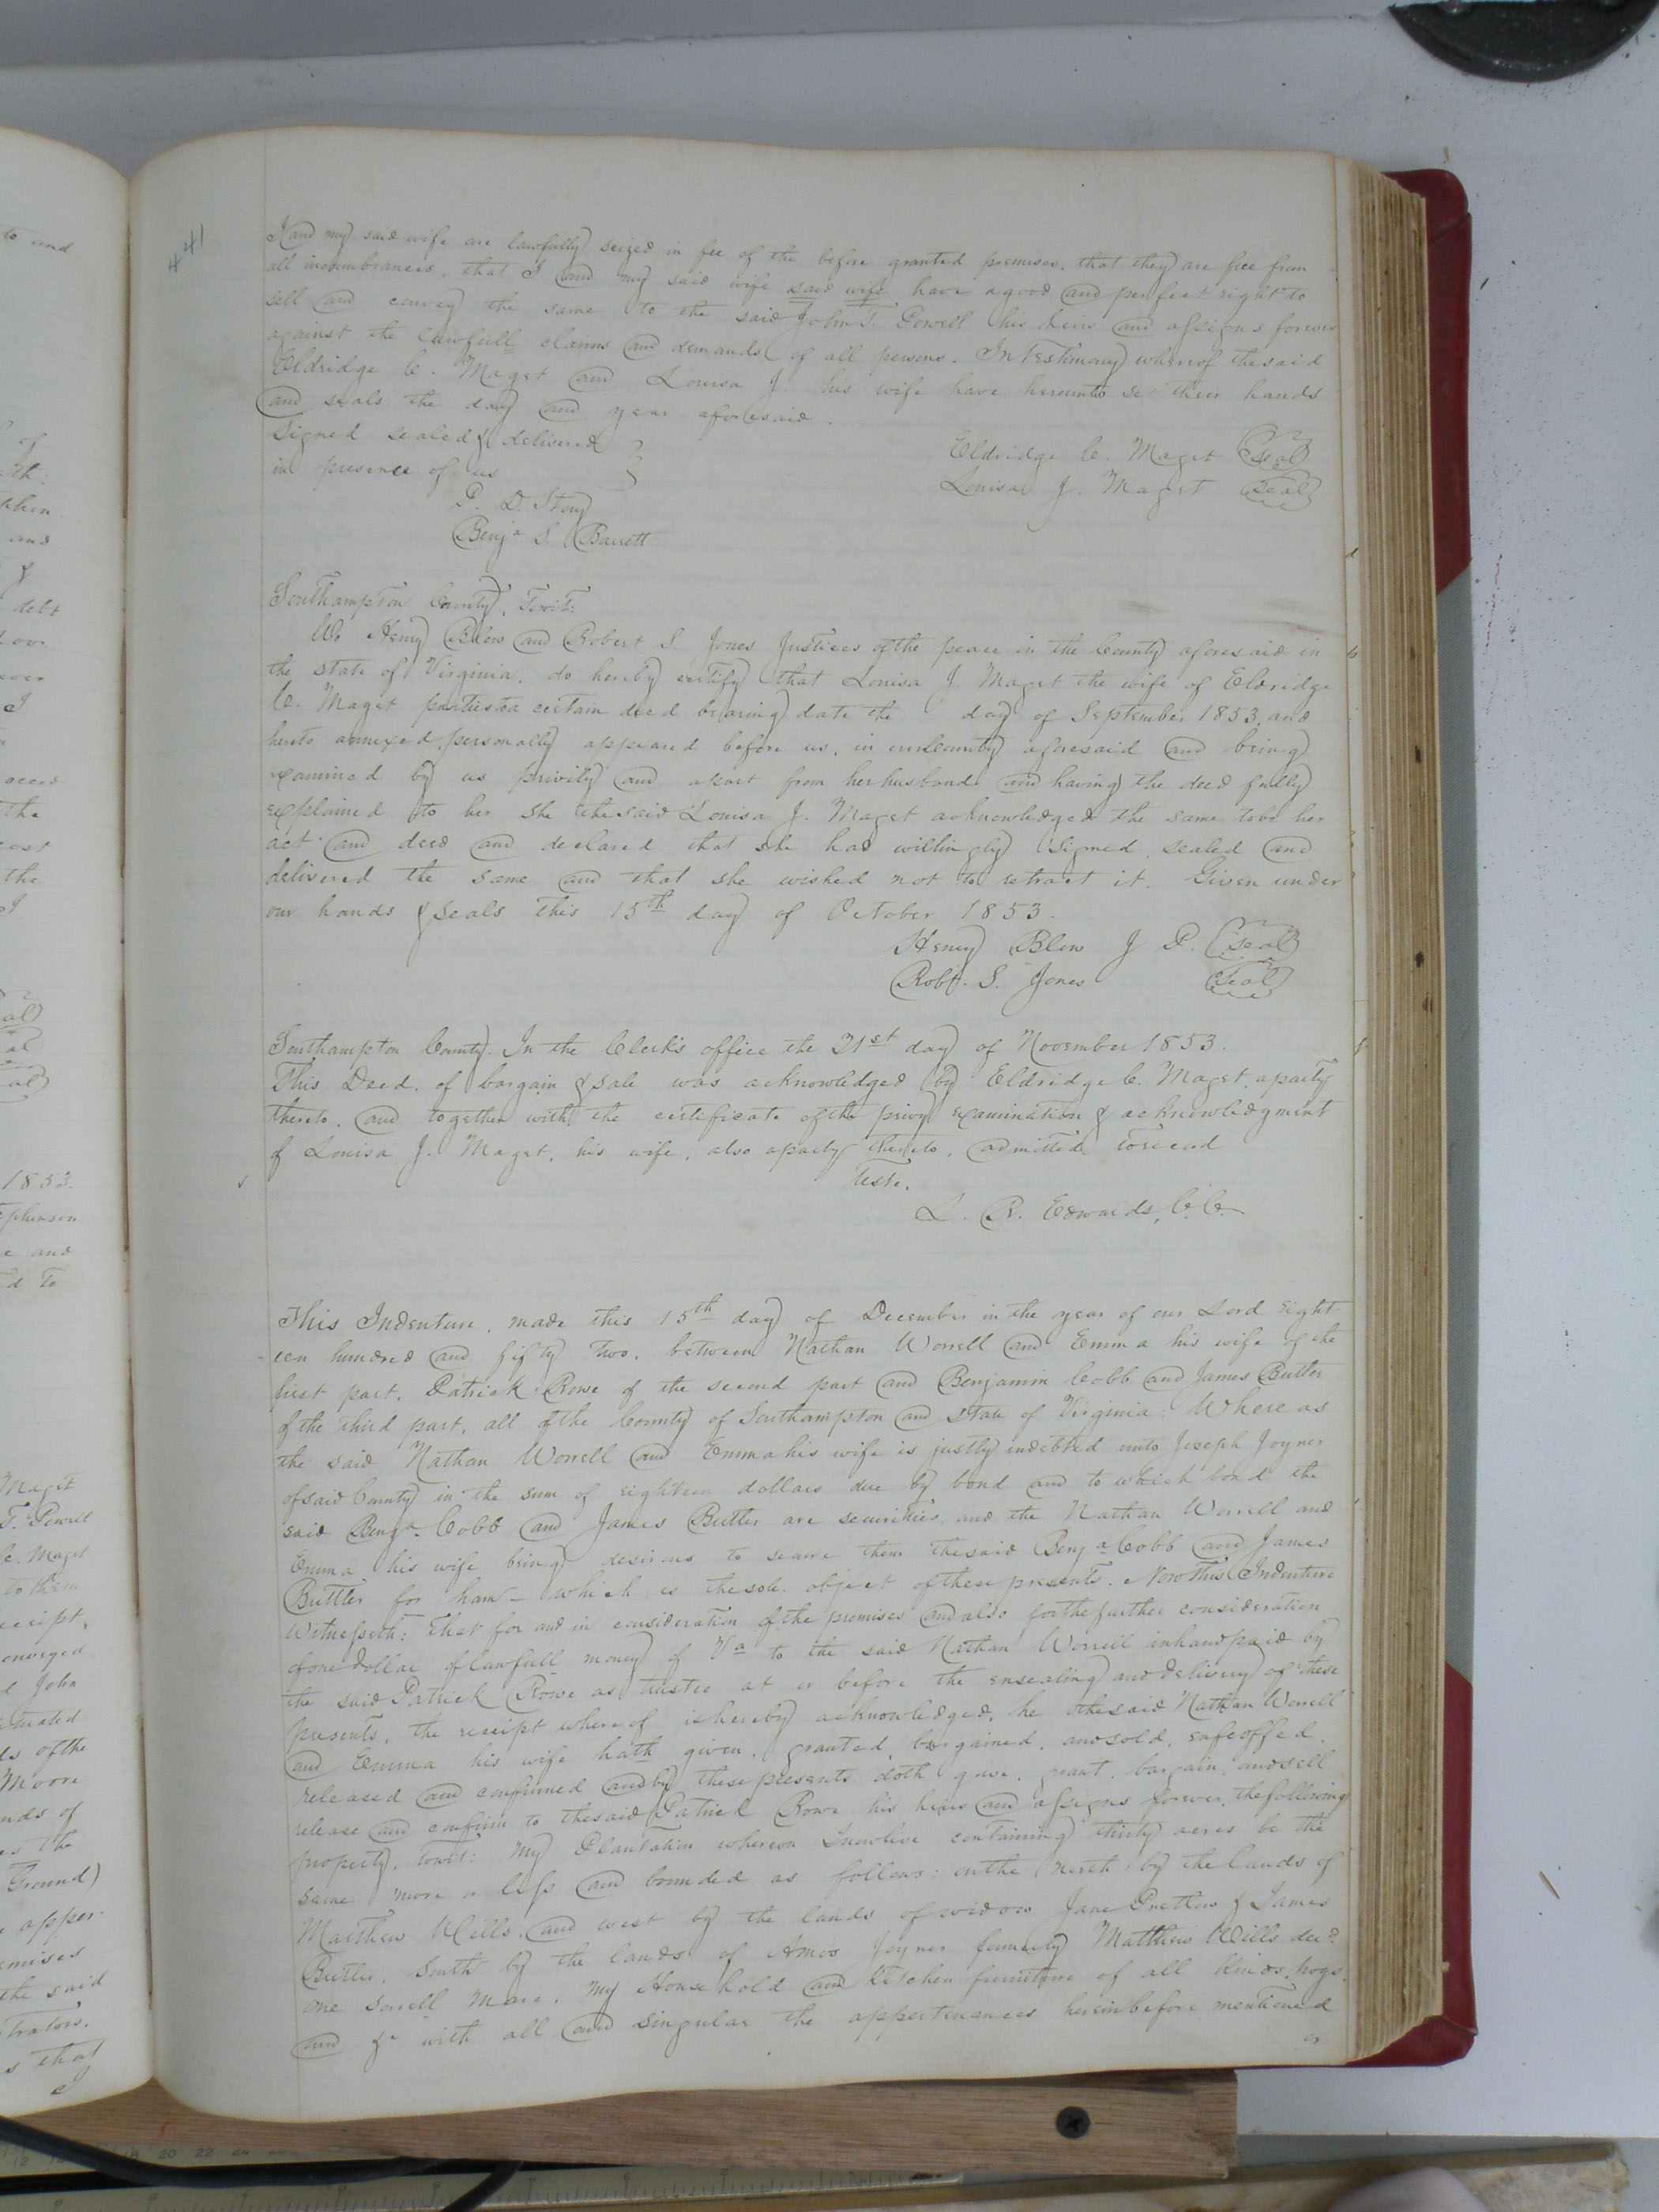 441
I and my said wife are lawfully seized in fee of the before granted premises, that they are free from
all incumbrances, that I and my said wife said wife have a good and perfect right to
sell and convey the same to the said John T. Powell his heirs and assigns forever
against the lawfull claims and demands of all persons. In Testimony whereof the said
Eldridge C. Maget and Louisa J his wife have hereunto set their hands
and seals the day and year aforesaid.
Signed sealed & delivered
in presence of us
Eldridge C. Maget Seal
Louisa J. Maget Seal
P. D. Stony
Benja S. Barrett
Southampton County, Towit:
We Henry Blow and Robert S. Jones Justices of the peace in the County aforesaid in
the state of Virginia, do hereby certify that Louisa J. Maget the wife of Eldridge
C. Maget parties to a certain deed bearing date the day of September 1853, and
hereto annexed, personally appeared before us, in our County aforesaid and being
examined by us privily and apart from her husband and having the deed fully
explained to her she the said Louisa J. Maget acknowledged the same to be her
act and deed and declared that she had willingly signed, sealed and
delivered the same and that she wished not to retract it. Given under
our hands & seals this 15th day of October 1853.
Henry Blow J P. Seal
Robt. S. Jones Seal
Southampton County. In the Clerk's office the 21st day of November 1853.
This Deed, of bargain & sale was acknowledged by Eldridge C. Maget, a party
thereto, and together with the certificate of the privy examination & acknowledgment
of Louisa J. Maget, his wife, also a party thereto, admitted to record
Teste.
L. R. Edwards, C.C.
This Indenture, made this 15th day of December in the year of our Lord Eight-
een hundred and fifty two, between Nathan Worrell and Emma his wife of the
first part, Patrick Rowe of the second part and Benjamin Cobb and James Butler
of the third part, all of the County of Southampton and State of Virginia: Where as
the said Nathan Worrell and Emma his wife is justly indebted unto Joseph Joyner
of said County in the sum of eighteen dollars due by bond and to which bond the
said Benja Cobb and James Butler are securities, and the Nathan Worrell and
Emma his wife being desirous to secure them the said Benja Cobb and James
Buttler for ham - which is the sole object of these presents. Now This Indenture
Witnesseth: That for and in consideration of the premises and also for the further consideration
of one dollar of lawfull money of Va to the said Nathan Worrell in hand paid by
the said Patrick Rowe as trustee at or before the ensealing and delivery of these
presents, the receipt whereof is hereby acknowledged, he the said Nathan Worrell
and Emma his wife hath given, granted, bargained, and sold, enfeoffed,
released and confirmed and by these presents doth gave, grant, bargain, and sell
release and confirm to the said Patrick Rowe his heirs and assigns forever, the following
property, towit: My Plantation whereon I now live containing thirty acres be the
same more or less and bounded as follows: on the North by the lands of
Matthew Wills, and west by the lands of widow Jane Pretlow & James
Butler, South by the lands of Amos Joyner formerly Matthew Wills decd
one Sorrell Mare, My House hold and Kitchen furniture of all kinds, hogs
and &c with all and singular the appertinances hereinbefore mentioned
or